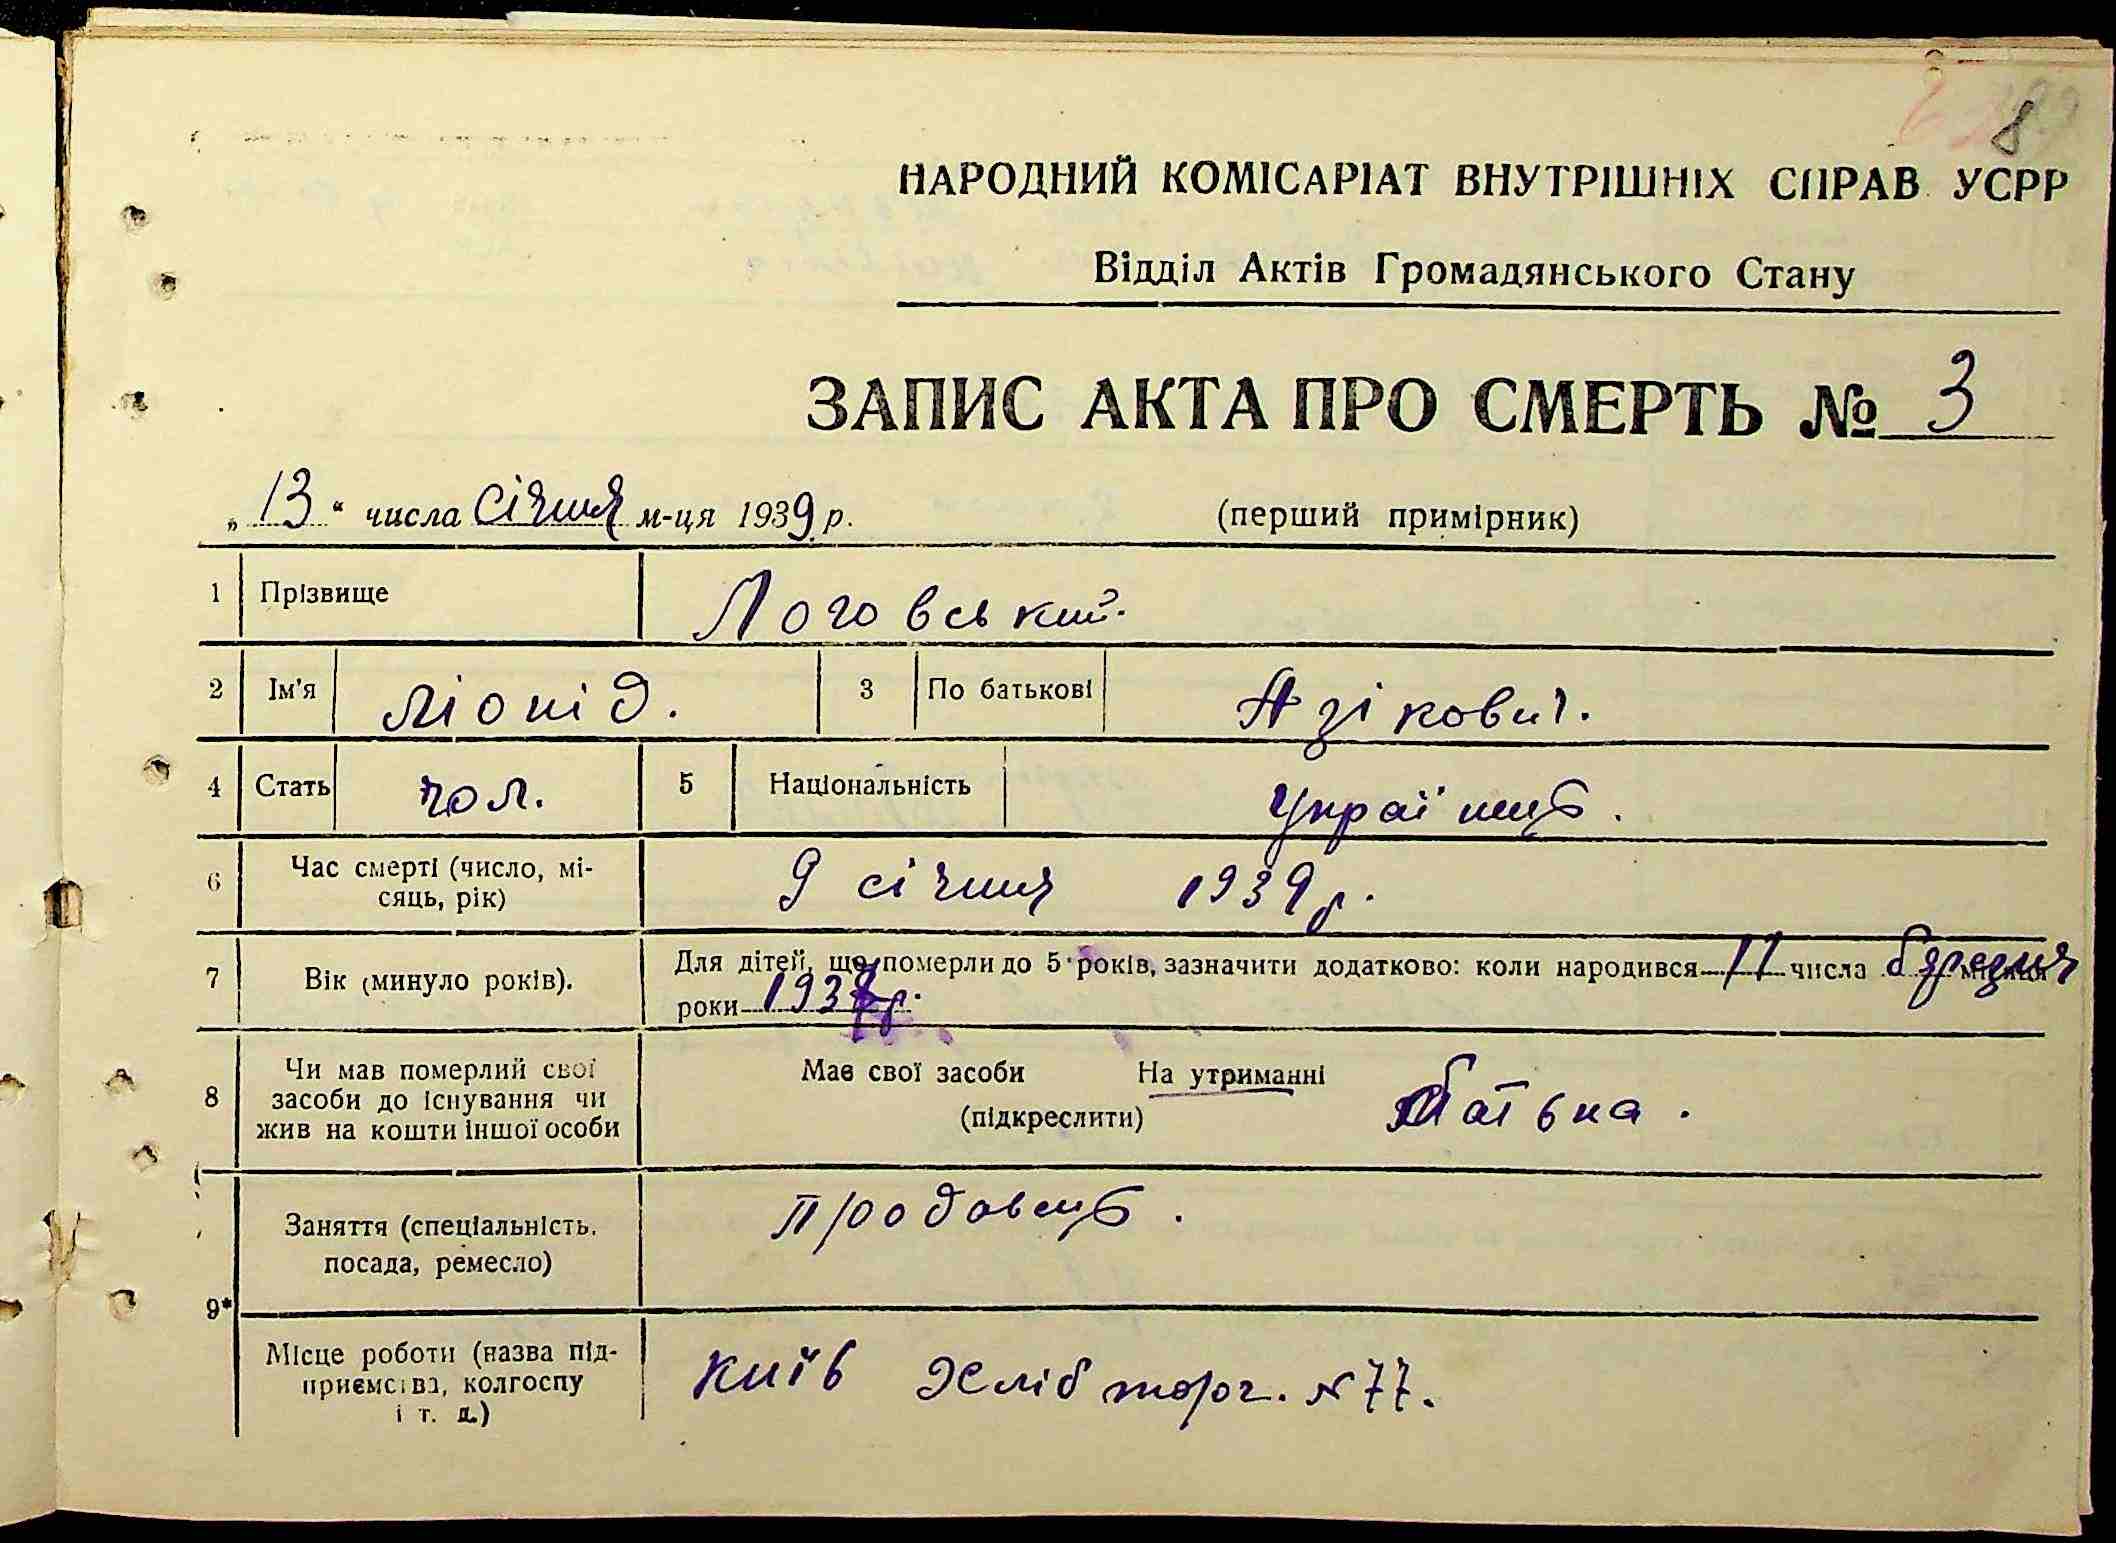 8
НАРОДНИЙ КОМІСАРІАТ ВНУТРІШНІХ СПРАВ УСРР
Відділ Актів Громадянського Стану
ЗАПИС АКТА ПРО СМЕРТЬ № 3
„ 13 “ числа січня м-ця 1939 р. (перший примірник)
1 Прізвище Логовський.
2 Ім'я Ліонід. 3 По батькові Азікович.
4 Стать чол. 5 Національність Українець.
6 Час смерті (число, мі-
сяць, рік) 9 січня 1939 р.
7 Вік (минуло років). Для дітей, що померли до 5 років, зазначити додатково: коли народився 11 числа березня місяця
роки 1937 р.
8 Чи мав померлий свої
засоби до існування чи
жив на кошти іншої особи
Має свої засоби На утриманні батька.
(підкреслити)
9*
Заняття (спеціальність,
посада, ремесло) продовець.
Місце роботи (назва під-
приємства, колгоспу
і т. д.) Київ Хлібторг. № 77.